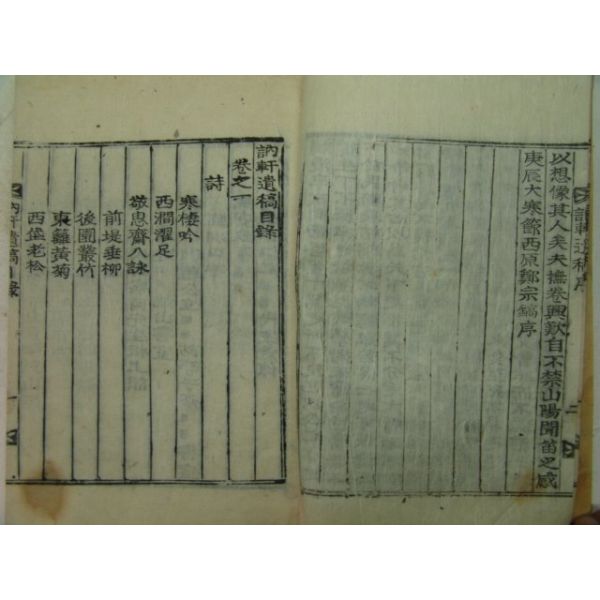 以想像其人矣夫撫卷興歎自不禁山陽聞笛之感
庚辰大寒節西原鄭宗鎬序
訥軒遺稿序
訥軒遺稿目錄
卷之一
詩
寒棲吟
西澗濯足
敬思齋八詠
前堤垂柳
後園叢竹
東籬黃菊
西堡老松
訥軒遺稿目錄